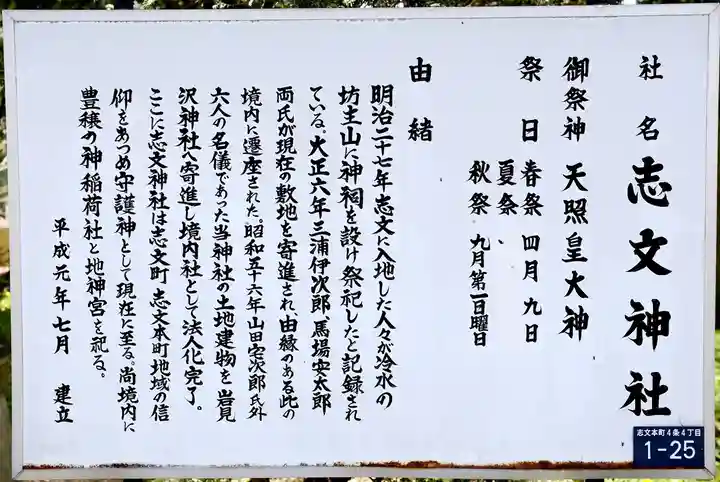 社名 志文神社
御祭神 天照皇大神
祭日 春祭 四月九日
夏祭、
秋祭 九月第一日曜日
由緒
明治二十七年志文に入地した人々が冷水の
坊主山に神祠を設け祭祀したと記録され
ている。大正六年三浦伊次郎、馬場安太郎
両氏が現在の敷地を寄進され、由縁のある此の
境内に遷座された。昭和五十六年山田宅次郎氏外
六人の名儀であった当神社の土地建物を岩見
沢神社へ寄進し境内社として法人化完了。
ここに志文神社は志文町 志文本町地域の信
仰をあつめ守護神として現在に至る。尚境内に
豊穣の神稲荷社と地神宮を祀る。
平成元年七月 建立
志文本町4条4丁目
1-25